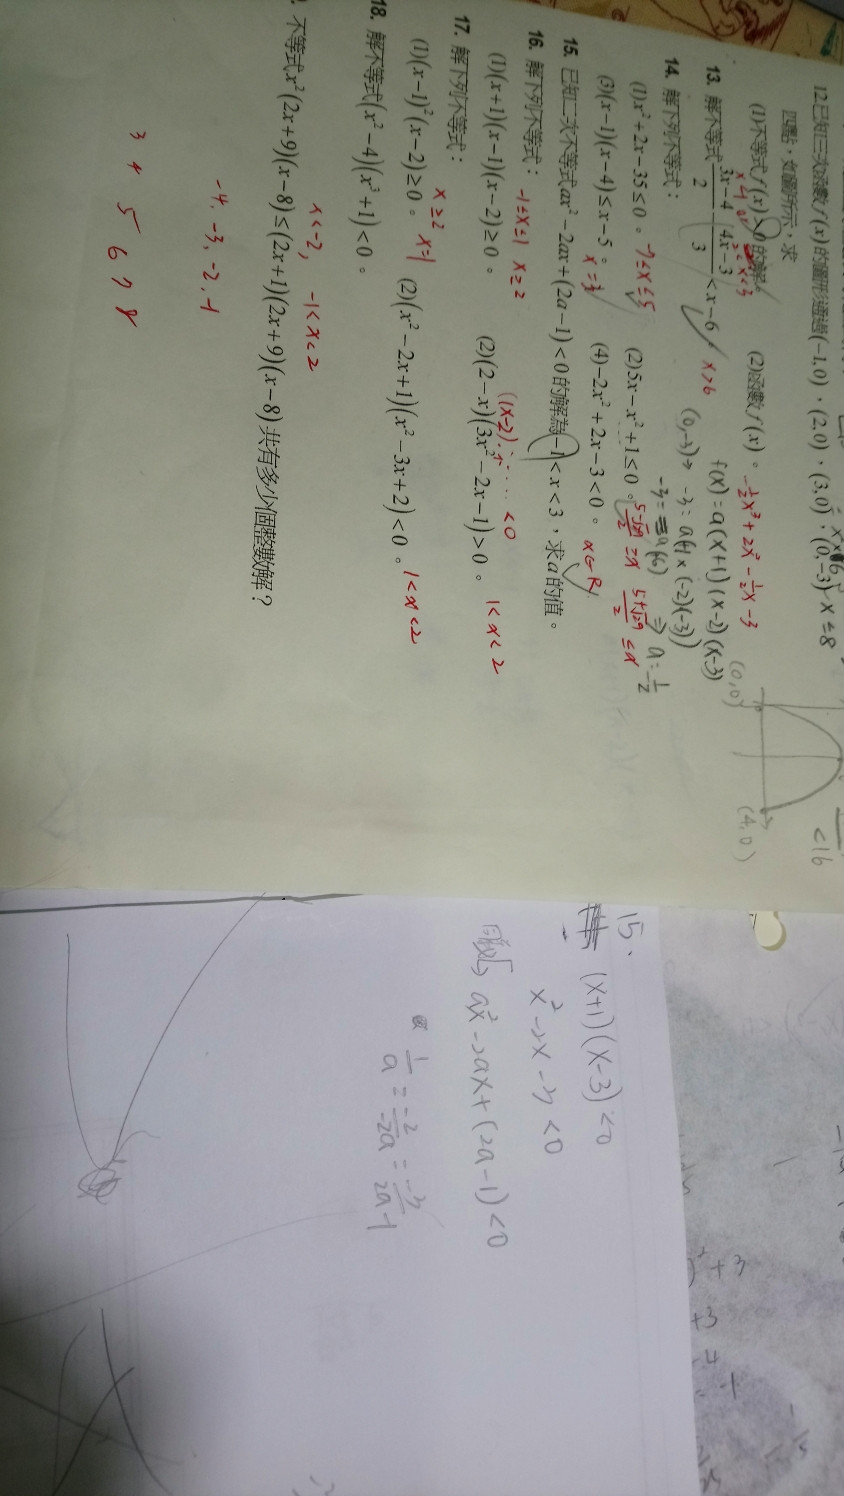 12.已知三次函數f(x)的圖形通過(-1,0)、(2,0)、(3,0)、(0,-3)
四點,如圖所示,求
(1)不等式f(x)>0的解。 (2)函數f(x)。 -½x³+2x²-½x-3
f(x)=a(x+1)(x-2)(x-3)
(0,-3)⇒ -3=a(1×(-2)(-3))
-3=a(6) ⇒ a=-½
(0,0)
(4,0)
<16
x≤8
13. 解不等式 (3x-4)/2 - (4x-3)/3 < x-6 x>6
14. 解下列不等式:
(1)x²+2x-35≤0。 -7≤x≤5 (2)5x-x²+1≤0。 (5-√29)/2 ≥x (5+√29)/2 ≤x
(3)(x-1)(x-4)≤x-5。 x=3 (4)-2x²+2x-3<0。 x∈R
15. 已知二次不等式ax²-2ax+(2a-1)<0的解為-1<x<3,求a的值。
16. 解下列不等式: -1≤x≤1 x≥2
(1)(x+1)(x-1)(x-2)≥0。 (2)(2-x)(3x²-2x-1)>0。 1<x<2
17. 解下列不等式:
(1)(x-1)²(x-2)≥0。 x≥2 x=1 (2)(x²-2x+1)(x²-3x+2)<0。 1<x<2
18. 解不等式(x²-4)(x³+1)<0。
x<-2, -1<x<2
不等式x²(2x+9)(x-8)≤(2x+1)(2x+9)(x-8)共有多少個整數解?
-4,-3,-2,-1
3 4 5 6 7 8
15.
(x+1)(x-3)<0
x²-2x-3<0
ax²-2ax+(2a-1)<0
1/a = -2/-2a = -3/2a-1